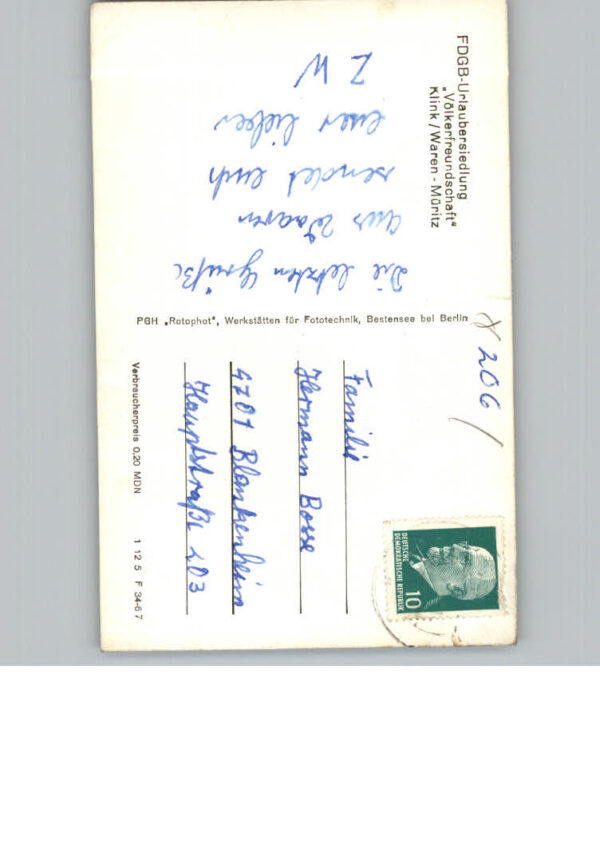 FDGB-Urlaubersiedlung
„Völkerfreundschaft“
Klink/Waren-Müritz
Die letzten Grüße
aus Waaren
sendet euch
euer lieber
Z W
PGH „Rotophot“, Werkstätten für Fototechnik, Bestensee bei Berlin
206
DEUTSCHE
DEMOKRATISCHE REPUBLIK
10
Familie
Hermann Bosse
4701 Blankenheim
Hauptstraße 203
Verbraucherpreis 0,20 MDN
1 12 5 F 34-67